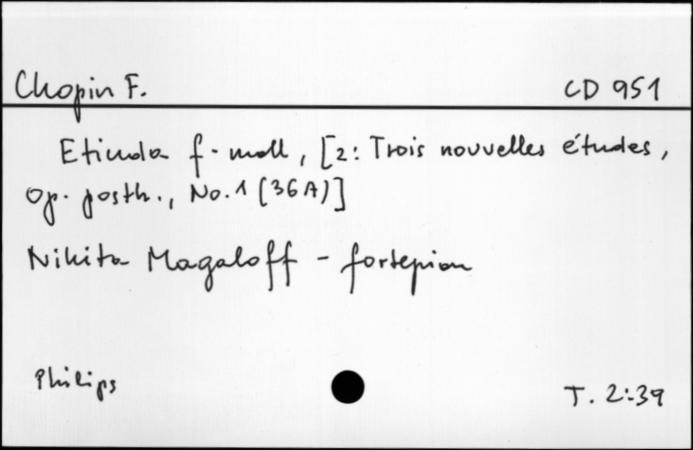 Chopin F. CD 951
Etiuda f-moll, [z: Trois nouvelles études,
Op. posth., No.1 (36A)]
Nikita Magaloff - fortepian
Philips T. 2:39